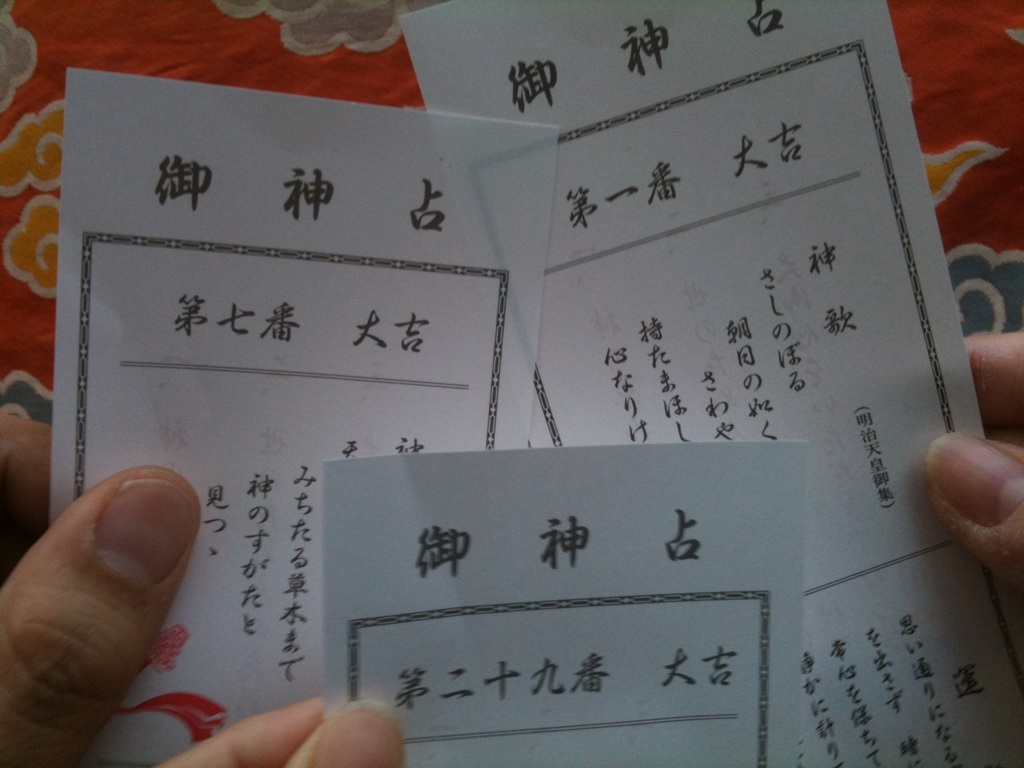 御神占
第七番 大吉
みちたる草木まで
神のすがたと
見つゝ
御神占
第一番 大吉
神歌
(明治天皇御集)
さしのぼる
朝日の如く
さわや
持たまほし
心なりけ
運
思い通りになる
を出さず
常心を保ちて
御神占
第二十九番 大吉